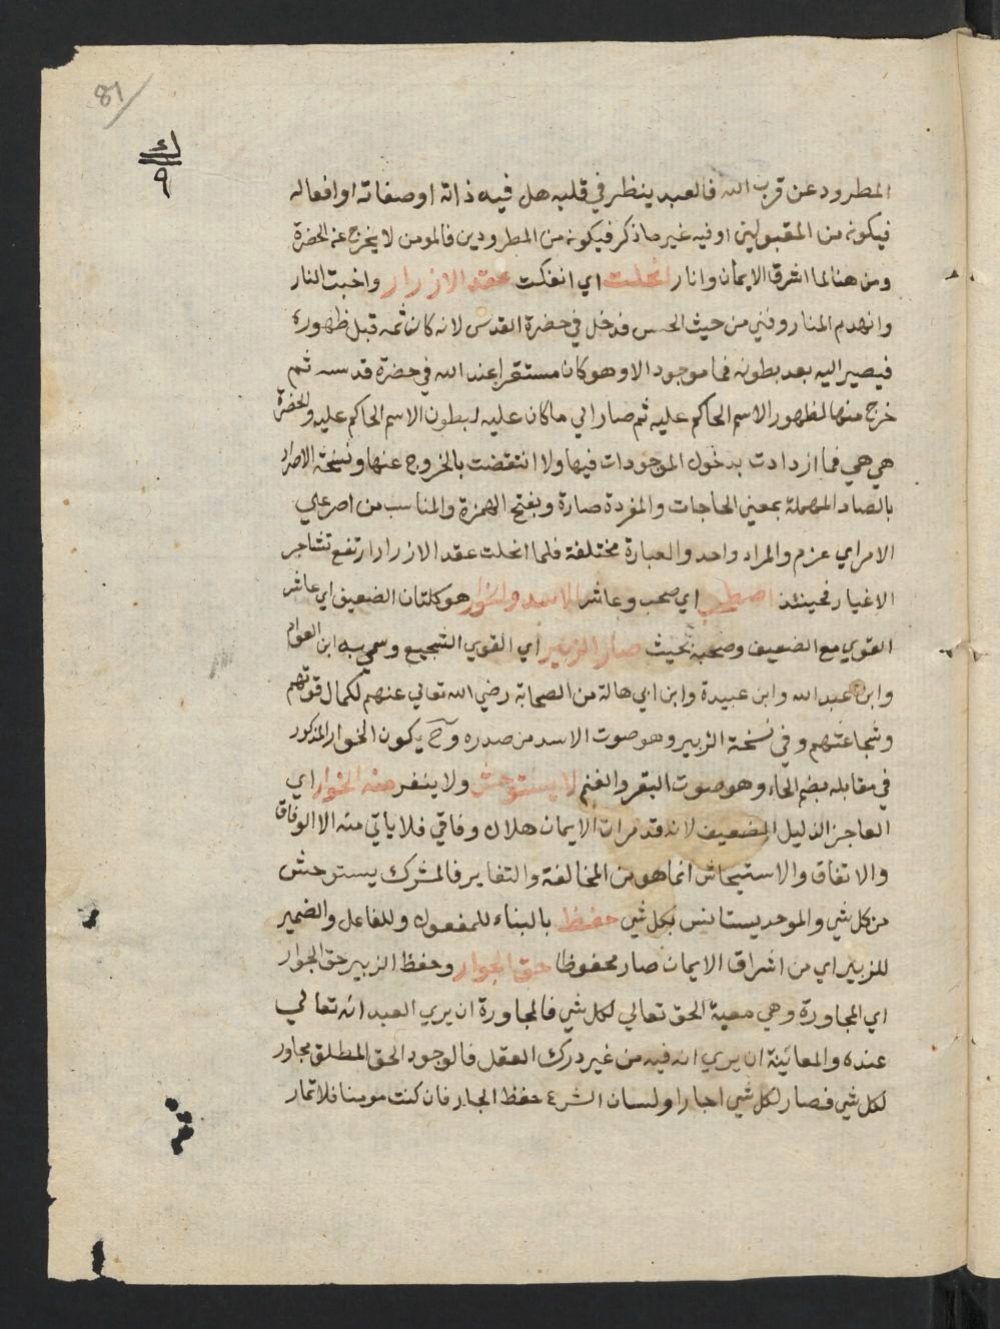 81
ك
٩
المطرود عن قرب الله فالعبد ينظر في قلبه هل فيه ذاته او صفاته او افعاله
فيكونه من المقبولين او فيه غير ما ذكر فيكونه من المطرودين فالمومن لا يخرج عنه الحضرة
ومن هنا لما اشرق الايمان وانار انحلت اي انفكت عقد الازرار واخبت النار
وانهدم المنار وفني من حيث الحس فدخل في حضرة القدس لانه كان ثمه قبل ظهوره
فيصير اليه بعد بطونه فما موجود الا وهو كان مستقرا عند الله في حضرة قدسه ثم
خرج منها لظهور الاسم الحاكم عليه ثم صار الي ماكان عليه لبطون الاسم الحاكم عليه والحضرة
هي هي فما ازدادت بدخول الموجودات فيها ولا انتقضت بالخروج عنها ونسخة الاصرار
بالصاد المهملة بمعني الحاجات والمفردة صارة وبفتح الهمزة والمناسب من اصر علي
الامر اي عزم والمراد واحد والعبارة مختلفة فلما انحلت عقد الازرار ارتفع تشاجر
الاغيار فحينئذ اصطحب اي صحب وعاشر الاسد والخوار هو ككتان الضعيف اي عاشر
القوي مع الضعيف وصحبه بحيث صار الزبير اي القوي الشجيع وسمي به ابن العوام
وابن عبد الله وابن عبيدة وابن ابي هالة من الصحابة رضي الله تعالي عنهم لكمال قوتهم
وشجاعتهم وفي نسخة الزبير وهو صوت الاسد من صدره وح يكون الخوار المذكور
في مقابله بضم الخاء وهو صوت البقر والغنم لا يستوحش ولا ينفر منه الخوار اي
العاجز الذليل الضعيف لانه قد مرات الايمان هلال وفاقي فلا ياتي منه الا الوفاق
والاتفاق والاستيحاش انما هو من المخالفة والتغاير فالمشرك يستوحش
من كل شي والموحد يستانس بكل شي حفظ بالبناء للمفعول وللفاعل والضمير
للزبير اي من اشراق الايمان صار محفوظا حق الجوار وحفظ الزبير حق الجوار
اي المجاورة وهي معية الحق تعالي لكل شي فالمجاورة ان يري العبد انه تعالي
عنده والمعاينة ان يري انه فيه من غير درك العقل فالوجود الحق المطلق مجاور
لكل شي فصار لكل شي اجبارا ولسان الشرع حفظ الجار فان كنت مومنا فلا تمار